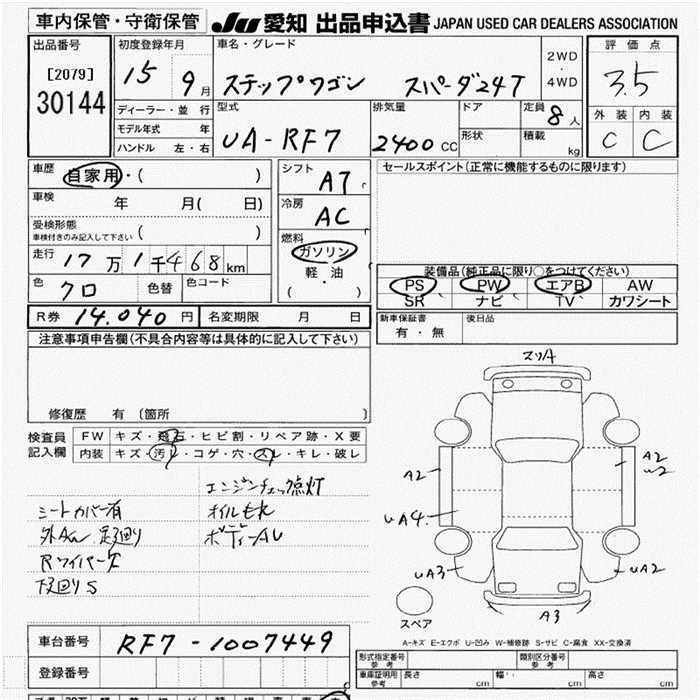 車内保管・守衛保管 JU 愛知 出品申込書 JAPAN USED CAR DEALERS ASSOCIATION
出品番号 初度登録年月 車名・グレード 評価点
[2079] 15 9月 ステップワゴン スパーダ24T 2WD 4WD 3.5
30144 ディーラー・並行 型式 排気量 ドア 定員 8人 外装 内装
モデル年式 年 UA-RF7 2400CC 形状 積載 C C
ハンドル 左・右 kg
車歴 自家用・( ) シフト AT セールスポイント(正常に機能するものに限ります)
車検 年 月( 日) 冷房 AC
受検形態
車検付きのみ記入して下さい ( ) 燃料
走行 17万1千468km ガソリン 装備品(純正品に限り○をつけてください)
色 クロ 色替 色コード 軽・油 PS PW エアB AW
( ) SR ナビ TV カワシート
R券 14.040円 名変期限 月 日 新車保証書 後日品
有・無
注意事項申告欄(不具合内容等は具体的に記入して下さい)
修復歴 有(箇所
検査員 FW キズ・飛石・ヒビ割・リペア跡・X要
記入欄 内装 キズ・汚レ・コゲ・穴・スレ・キレ・破レ
エンジンチェック点灯
シートカバー有 オイルもれ
ボディーAU
Rワイパー欠
下回りS
スリA
A2 A2
U2
UA4
UA3 UA2
スペア A3
A-キズ E-エクボ U-凹み W-補修跡 S-サビ C-腐食 XX-交換済
車台番号 RF7-1007449
形式指定番号 参考 類別区分番号 参考
登録番号 車庫証明用 参考 長さ cm 幅 cm 高さ cm